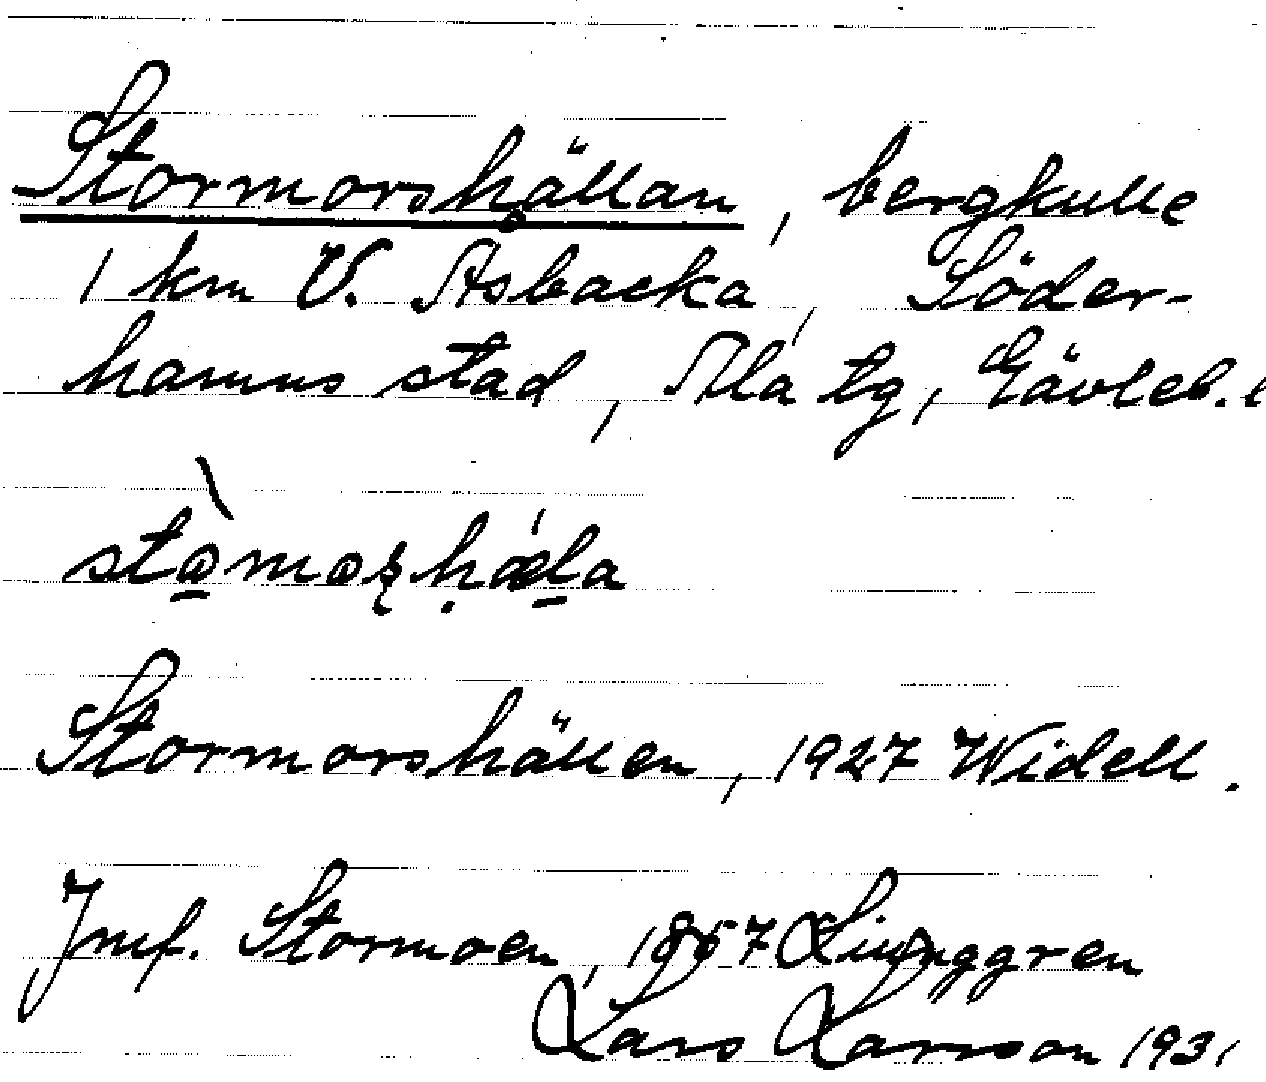 Stormorshällan, bergkulle
1 km V. Asbacka, Söder-
hamns stad, Ala tg, Gävleb. l
Stormorshällen, 1927 Widell.
Jmf. Stormoen, 1857 Ljunggren
Lars Larsson 1931